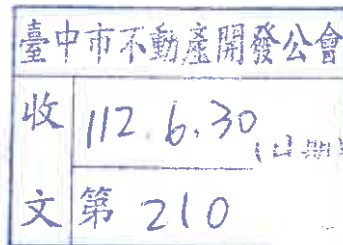 臺中市不動產開發公會
收 112.6.30 (日期)
文 第 210